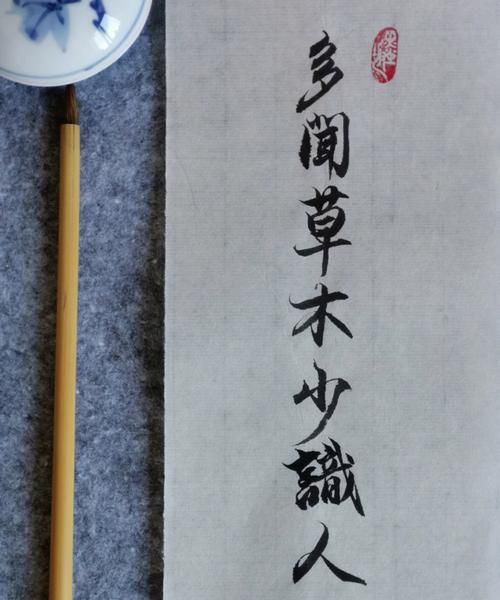 多聞草木少識人